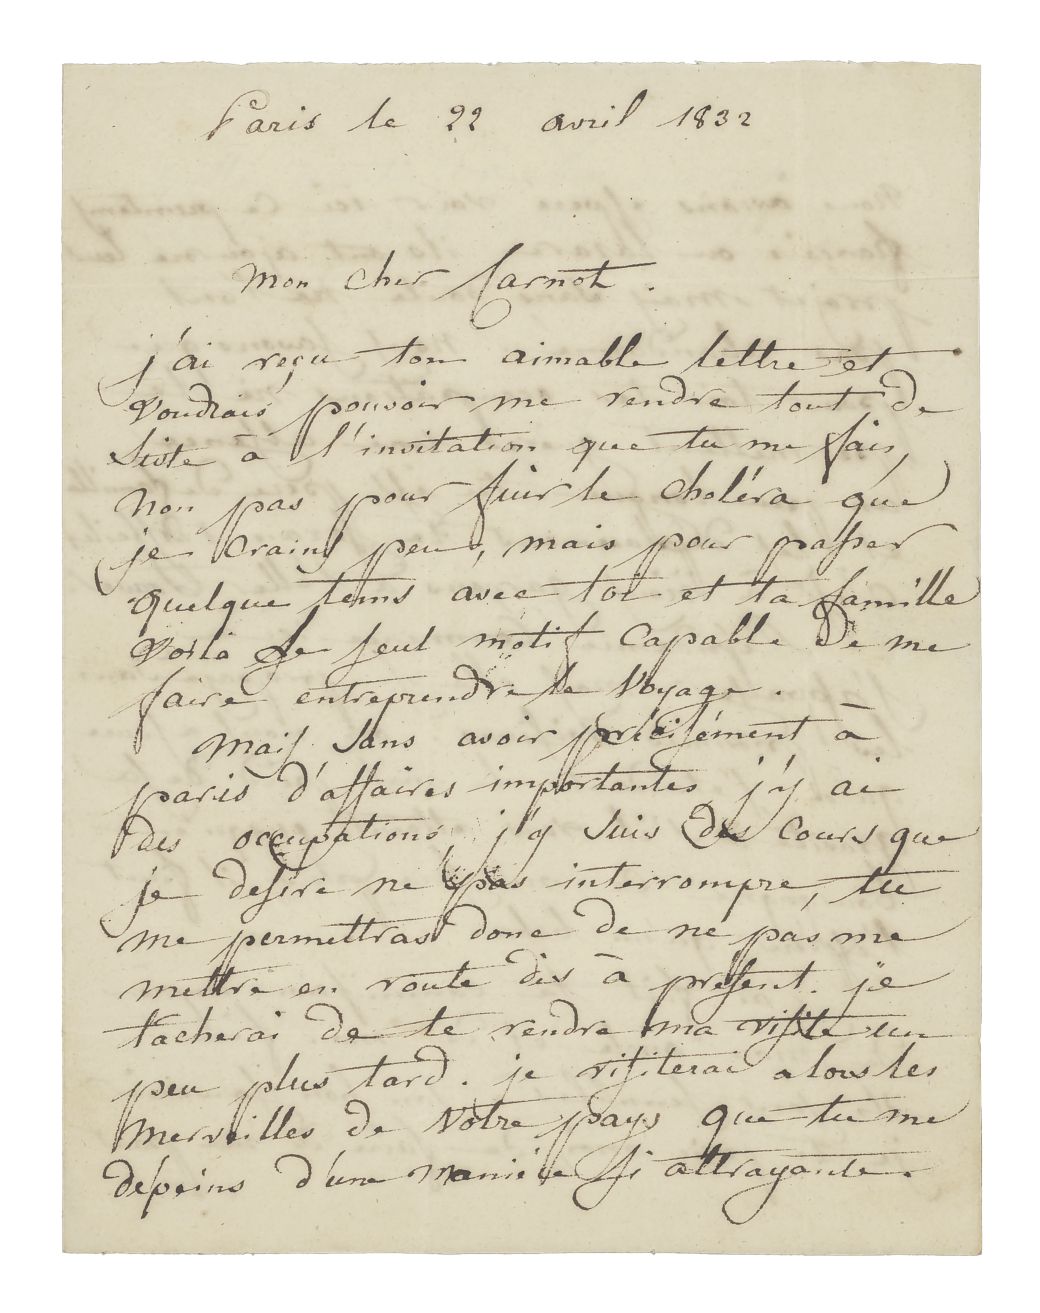 Paris le 22 avril 1832
Mon cher Carnot.
j'ai reçu ton aimable lettre et
voudrais pouvoir me rendre tout de
suite à l'invitation que tu me fais,
non pas pour fuir le choléra que
je crains peu, mais pour passer
quelque tems avec toi et ta famille
voila le seul motif capable de me
faire entreprendre le voyage.
Mais sans avoir précisément à
paris d'affaires importantes j'y ai
des occupations, j'y suis des cours que
je desire ne pas interrompre, tu
me permettras donc de ne pas me
mettre en route dès à présent. je
tacherai de te rendre ma visite un
peu plus tard. je visiterai alors les
merveilles de votre pays que tu me
dépeins d'une manière si attrayante.